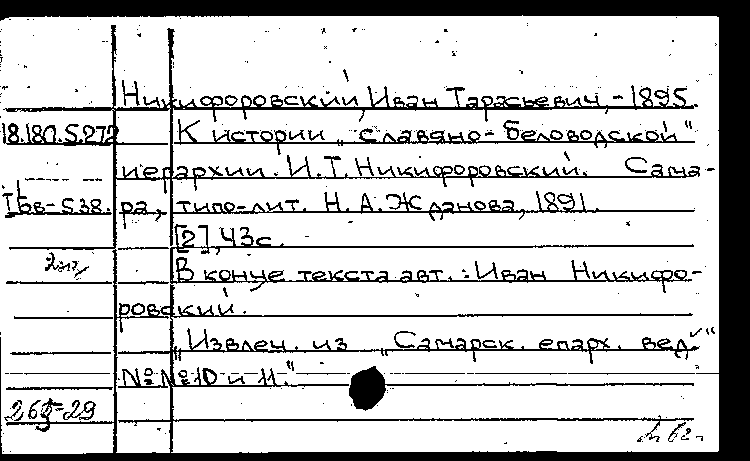 Никифоровский, Иван Тарасьевич, -1895.
18.180.5.272 К истории „славяно-беловодской"
иерархии. И.Т. Никифоровский. Сама-
Iбв-5.38. ра, типо-лит. Н.А. Жданова, 1891.
[2], 43с.
В конце текста авт.: Иван Никифо-
ровский.
„Извлеч. из „Самарск. епарх. вед."
№№10 и 11."
265-29